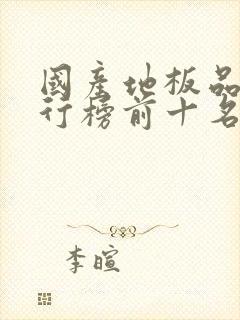 國產地板品
行榜前十名
李暄